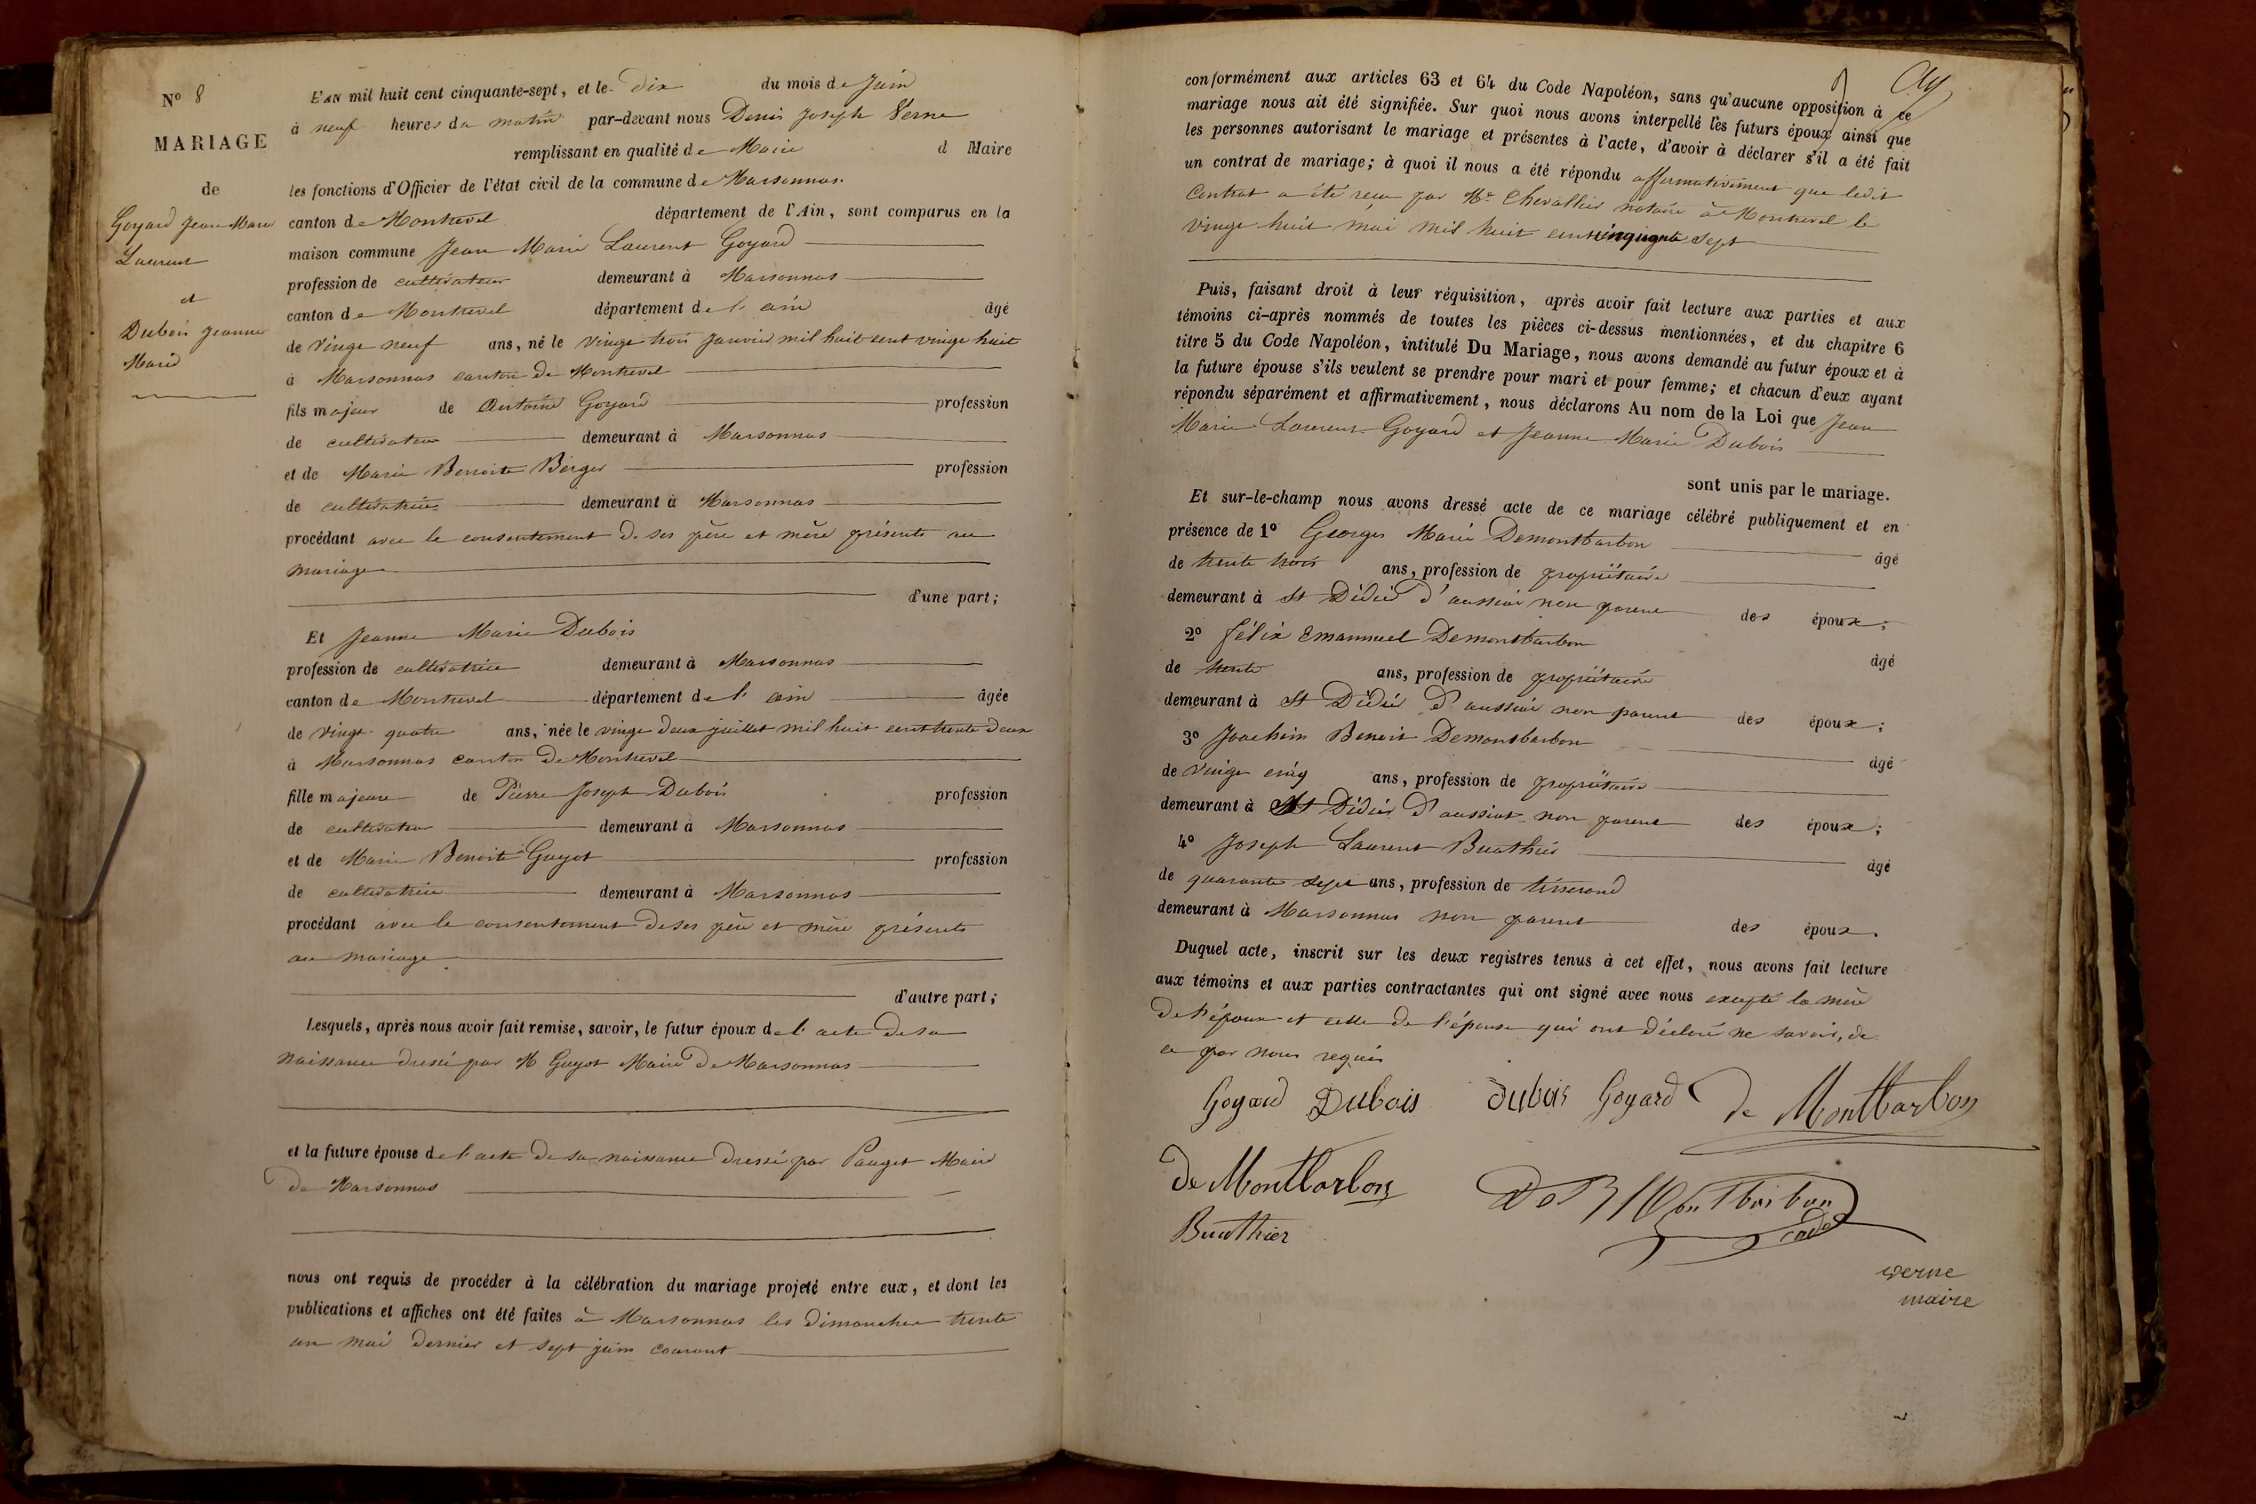 N° 8
MARIAGE
de
Goyard Jean Marie
Laurent
et
Dubois Jeanne
Marie
L'AN mil huit cent cinquante-sept, et le dix du mois de Juin
à neuf heures du matin par-devant nous Denis Joseph Verne
remplissant en qualité de Maire d Maire
les fonctions d'Officier de l'état civil de la commune de Marsonnas
canton de Montrevel département de l'Ain, sont comparus en la
maison commune Jean Marie Laurent Goyard
profession de cultivateur demeurant à Marsonnas
canton de Montrevel département de l'ain âgé
de vingt neuf ans, né le vingt trois janvier mil huit cent vingt huit
à Marsonnas canton de Montrevel
fils majeur de Antoine Goyard profession
de cultivateur demeurant à Marsonnas
et de Marie Benoite Berger profession
de cultivatrice demeurant à Marsonnas
procédant avec le consentement de ses père et mère présents au
mariage
d'une part;
Et Jeanne Marie Dubois
profession de cultivatrice demeurant à Marsonnas
canton de Montrevel département de l'ain âgée
de vingt quatre ans, née le vingt deux juillet mil huit cent trente deux
à Marsonnas canton de Montrevel
fille majeure de Pierre Joseph Dubois profession
de cultivateur demeurant à Marsonnas
et de Marie Benoite Guyot profession
de cultivatrice demeurant à Marsonnas
procédant avec le consentement de ses père et mère présents
au mariage
d'autre part;
Lesquels, après nous avoir fait remise, savoir, le futur époux de l'acte de sa
naissance dressé par M Guyot Maire de Marsonnas
et la future épouse de l'acte de sa naissance dressé par Pauget Maire
de Marsonnas
nous ont requis de procéder à la célébration du mariage projeté entre eux, et dont les
publications et affiches ont été faites à Marsonnas les dimanches trente
un mai dernier et sept juin courant
conformément aux articles 63 et 64 du Code Napoléon, sans qu'aucune opposition à ce
mariage nous ait été signifiée. Sur quoi nous avons interpellé les futurs époux ainsi que
les personnes autorisant le mariage et présentes à l'acte, d'avoir à déclarer s'il a été fait
un contrat de mariage; à quoi il nous a été répondu affirmativement que ledit
Contrat a été reçu par Me Chevallier notaire à Montrevel le
vingt huit mai mil huit cent cinquante sept
Puis, faisant droit à leur réquisition, après avoir fait lecture aux parties et aux
témoins ci-après nommés de toutes les pièces ci-dessus mentionnées, et du chapitre 6
titre 5 du Code Napoléon, intitulé Du Mariage, nous avons demandé au futur époux et à
la future épouse s'ils veulent se prendre pour mari et pour femme; et chacun d'eux ayant
répondu séparément et affirmativement, nous déclarons Au nom de la Loi que Jean
Marie Laurent Goyard et Jeanne Marie Dubois
sont unis par le mariage.
Et sur-le-champ nous avons dressé acte de ce mariage célébré publiquement et en
présence de 1° Georges Marie Demontbarbon
âgé
de trente trois ans, profession de propriétaire
demeurant à St Didier d'aussiat non parent des époux;
2° Félix Emannuel Demontbarbon
âgé
de trente ans, profession de propriétaire
demeurant à St Didier d'aussiat non parent des époux;
3° Joachim Benoit Demontbarbon
âgé
de vingt cinq ans, profession de propriétaire
demeurant à St Didier d'aussiat non parent des époux;
4° Joseph Laurent Buathier
âgé
de quarante sept ans, profession de tisserand
demeurant à Marsonnas non parent des époux.
Duquel acte, inscrit sur les deux registres tenus à cet effet, nous avons fait lecture
aux témoins et aux parties contractantes qui ont signé avec nous excepté la mère
de l'époux et celle de l'épouse qui ont déclaré ne savoir, de
ce par nous requis
Goyard Dubois Dubois Goyard de Montbarbon
De Montbarbon De Montbarbon
Buathier
verne
maire